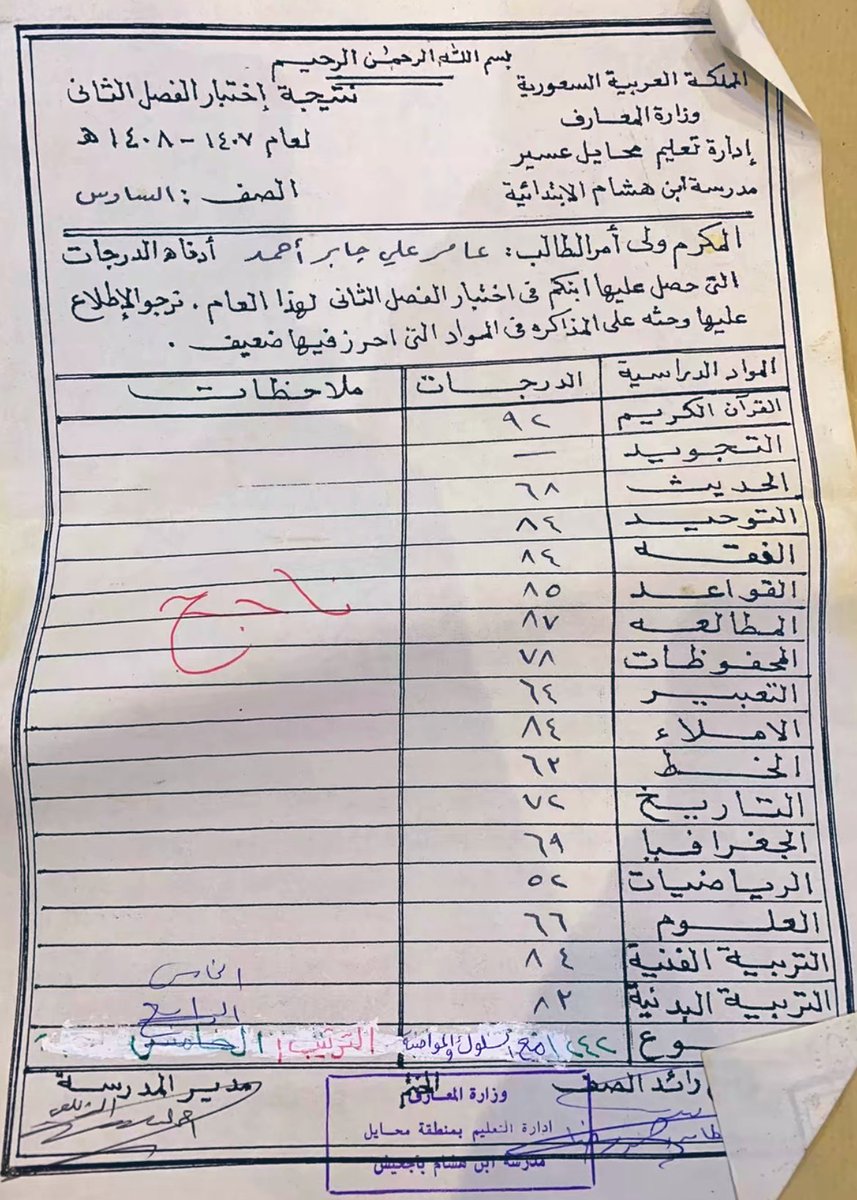 بسم الله الرحمن الرحيم
المملكة العربية السعودية
وزارة المعارف
إدارة تعليم محايل عسير
مدرسة ابن هشام الابتدائية
نتيجة إختبار الفصل الثانى
لعام ١٤٠٧ - ١٤٠٨ هـ
الصف : السادس
المكرم ولى أمر الطالب : عامر علي جابر أحمد أدناه الدرجات
التى حصل عليها ابنكم فى اختبار الفصل الثانى لهذا العام . نرجو الإطلاع
عليها وحثه على المذاكره فى المواد التى احرز فيها ضعيف .
المواد الدراسية الدرجات ملاحظات
القرآن الكريم ٩٢
التجويد —
الحديث ٦٨
التوحيد ٨٤
الفقه ٨٤
القواعد ٨٥
المطالعه ٨٧
المحفوظات ٧٨
التعبير ٦٤
الاملاء ٨٤
الخط ٦٢
التاريخ ٧٢
الجغرافيا ٦٩
الرياضيات ٥٢
العلوم ٦٦
التربية الفنية ٨٤
التربية البدنية ٨٢
ناجح
الخامس
الرابع
وع ١٢٤٢ مع السلوك والمواظبة الترتيب / الخامس
رائد الصف الختم مدير المدرسة
وزارة المعارف
ادارة التعليم بمنطقة محايل
مدرسة ابن هشام